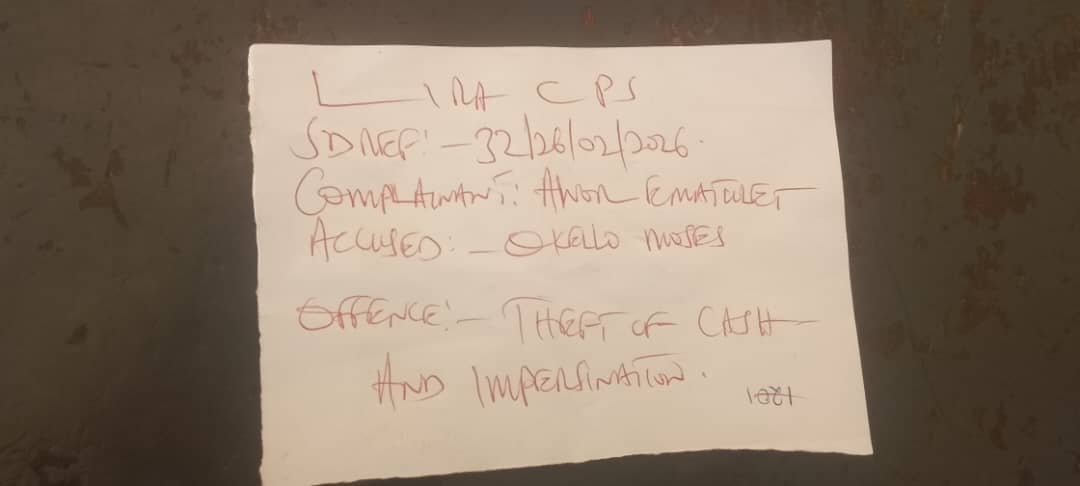 LIRA CPS
SD REF:- 32/26/02/2026.
COMPLAINANT: AWOR
ACCUSED:- OKELLO MOSES
OFFENCE:- THEFT OF CASH
AND IMPERSINATION.